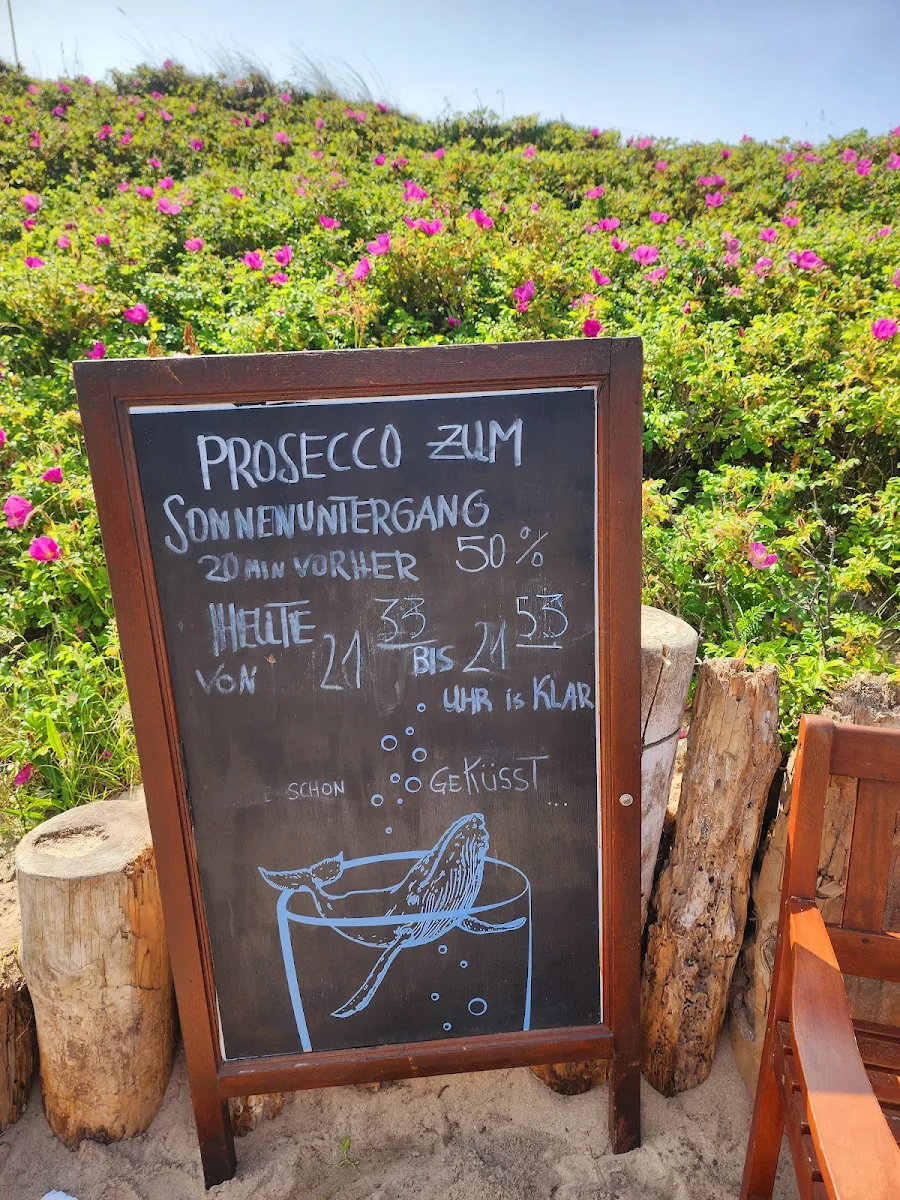 PROSECCO ZUM
SONNENUNTERGANG
20 MIN VORHER 50%
HEUTE
VON 21 33 BIS 21 53
UHR is KLAR
SCHON GEKÜSST ...